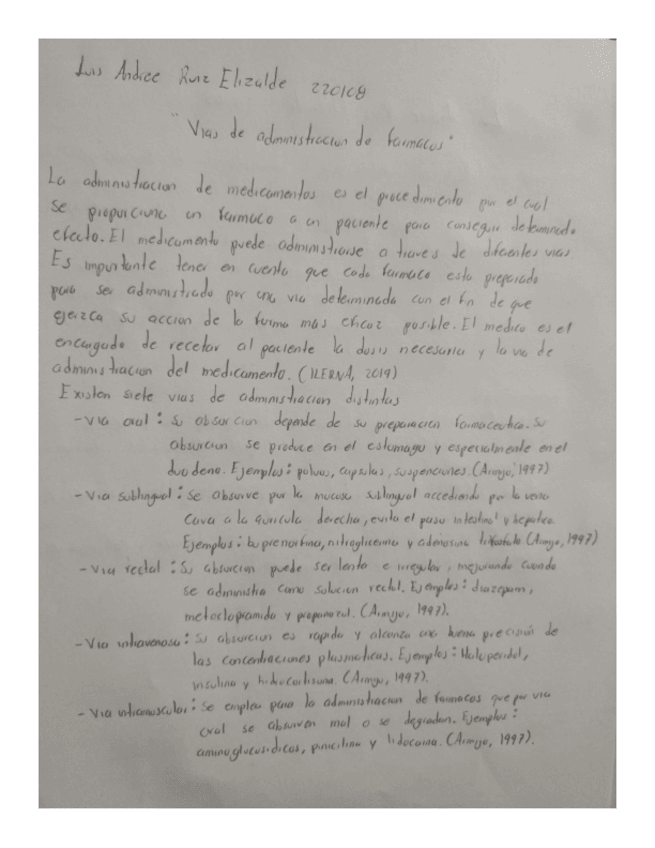 Luis Andree Ruiz Elizalde 220168
"Vias de administracion de farmacos"
La administracion de medicamentos es el procedimiento por el cual
se proporciona un farmaco a un paciente para conseguir determinado
efecto. El medicamento puede administrarse a traves de diferentes vias
Es importante tener en cuenta que cada farmaco esta preparado
para ser administrado por una via determinada con el fin de que
ejerza su accion de la forma mas eficaz posible. El medico es el
encargado de recetar al paciente la dosis necesaria y la via de
administracion del medicamento. (ILERNA, 2019)
Existen siete vias de administracion distintas
- Via oral: Su absorcion depende de su preparacion farmaceutica. Su
absorcion se produce en el estomago y especialmente en el
duodeno. Ejemplos: polvos, capsulas, suspenciones. (Armijo, 1997)
- Via sublingual: Se absorve por la mucosa sublingual accediendo por la vena
Cava a la auricula derecha, evita el paso intestinal y hepatico.
Ejemplos: buprenorfina, nitroglicerina y adenosina trifosfato (Armijo, 1997)
- Via rectal: Su absorcion puede ser lenta e irregular, mejorando cuando
se administra como solucion rectal. Ejemplos: diazepam,
metoclopramida y (Armijo, 1997).
- Via intravenosa: Su absorcion es rapida y alcanza una buena precisión de
las concentraciones plasmaticas. Ejemplos: Haloperidol,
insulina y hidrocortisona. (Armijo, 1997).
- Via intramuscular: Se emplea para la administracion de farmacos que por via
oral se absorven mal o se degradan. Ejemplos:
aminoglucosidicos, penicilina y lidocaina. (Armijo, 1997).